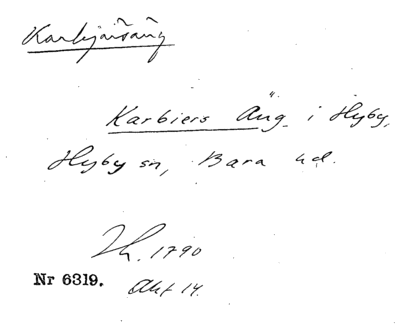 Karbiers Äng i Hyby,
Hyby sn, Bara hd.
1790
Nr 6319. Akt 14.